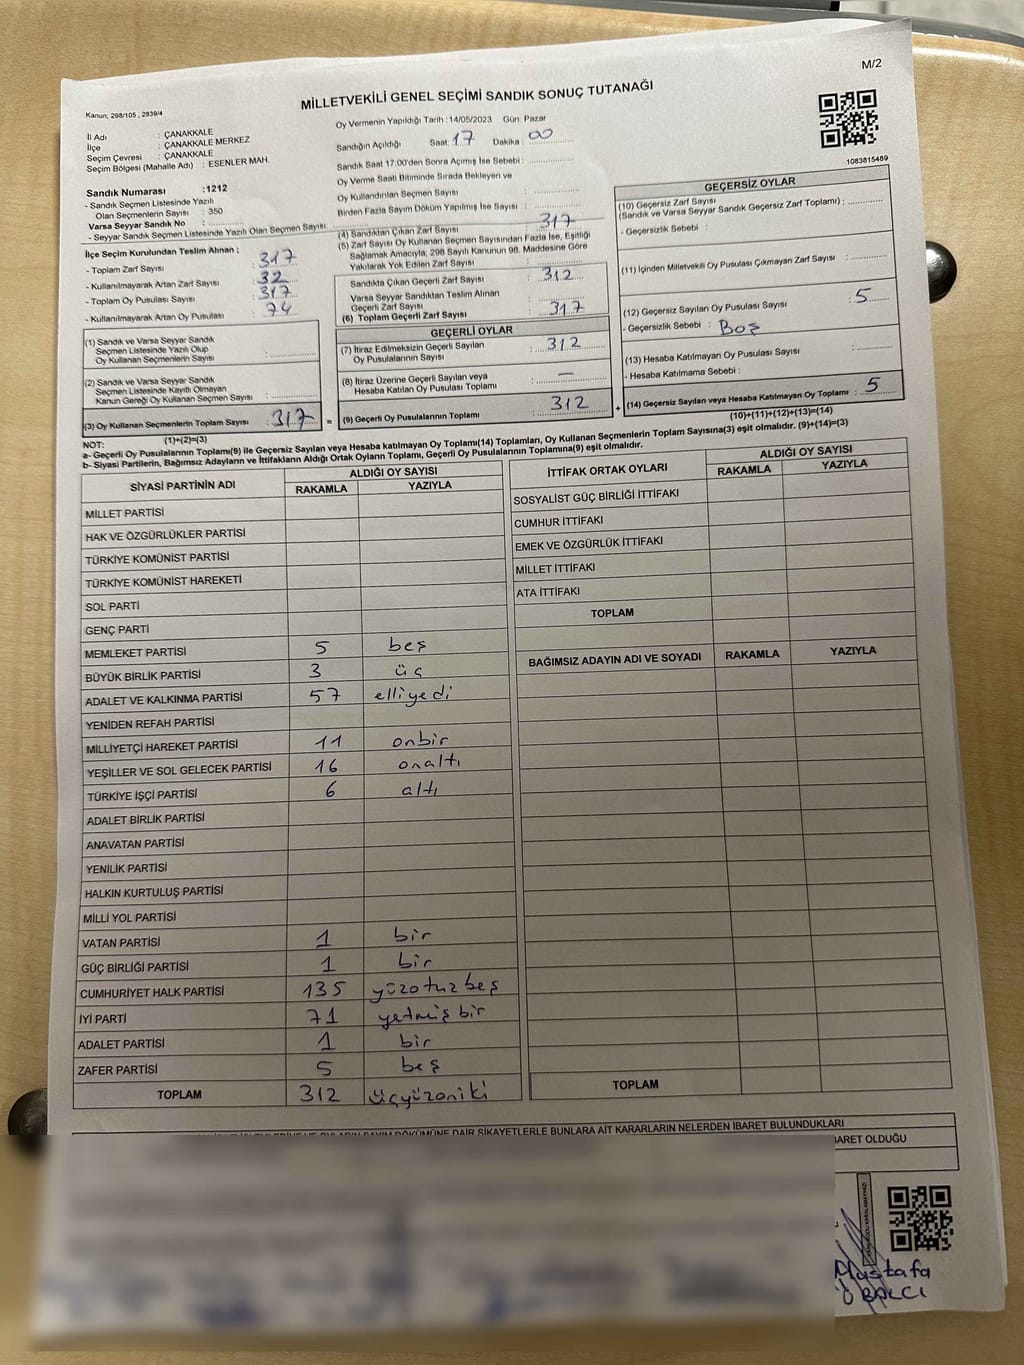 M/2
MİLLETVEKİLİ GENEL SEÇİMİ SANDIK SONUÇ TUTANAĞI
Kanun; 298/105 , 2839/4
İl Adı : ÇANAKKALE
İlçe : ÇANAKKALE MERKEZ
Seçim Çevresi : ÇANAKKALE
Seçim Bölgesi (Mahalle Adı) : ESENLER MAH.
Sandık Numarası :1212
- Sandık Seçmen Listesinde Yazılı
Olan Seçmenlerin Sayısı : 350
Varsa Seyyar Sandık No :
- Seyyar Sandık Seçmen Listesinde Yazılı Olan Seçmen Sayısı:
İlçe Seçim Kurulundan Teslim Alınan ;
- Toplam Zarf Sayısı : 317
- Kullanılmayarak Artan Zarf Sayısı : 32
- Toplam Oy Pusulası Sayısı : 317
- Kullanılmayarak Artan Oy Pusulası : 74
(1) Sandık ve Varsa Seyyar Sandık
Seçmen Listesinde Yazılı Olup
Oy Kullanan Seçmenlerin Sayısı :
(2) Sandık ve Varsa Seyyar Sandık
Seçmen Listesinde Kayıtlı Olmayan
Kanun Gereği Oy Kullanan Seçmen Sayısı :
(3) Oy Kullanan Seçmenlerin Toplam Sayısı : 317 =
(1)+(2)=(3)
Oy Vermenin Yapıldığı Tarih :14/05/2023 Gün: Pazar
Sandığın Açıldığı Saat: 17 Dakika : 00
Sandık Saat 17:00'den Sonra Açımış İse Sebebi :
Oy Verme Saati Bitiminde Sırada Bekleyen ve
Oy Kullandırılan Seçmen Sayısı :
Birden Fazla Sayım Döküm Yapılmış İse Sayısı :
(4) Sandıktan Çıkan Zarf Sayısı : 317
(5) Zarf Sayısı Oy Kullanan Seçmen Sayısından Fazla İse, Eşitliği
Sağlamak Amacıyla, 298 Sayılı Kanunun 98. Maddesine Göre
Yakılarak Yok Edilen Zarf Sayısı :
Sandıkta Çıkan Geçerli Zarf Sayısı : 312
Varsa Seyyar Sandıktan Teslim Alınan
Geçerli Zarf Sayısı :
(6) Toplam Geçerli Zarf Sayısı : 317
GEÇERLİ OYLAR
(7) İtiraz Edilmeksizin Geçerli Sayılan
Oy Pusulalarının Sayısı : 312
(8) İtiraz Üzerine Geçerli Sayılan veya
Hesaba Katılan Oy Pusulası Toplamı : —
(9) Geçerli Oy Pusulalarının Toplamı : 312 +
1083815489
GEÇERSİZ OYLAR
(10) Geçersiz Zarf Sayısı
(Sandık ve Varsa Seyyar Sandık Geçersiz Zarf Toplamı) :
- Geçersizlik Sebebi :
(11) İçinden Milletvekili Oy Pusulası Çıkmayan Zarf Sayısı :
(12) Geçersiz Sayılan Oy Pusulası Sayısı : 5
- Geçersizlik Sebebi : Boş
(13) Hesaba Katılmayan Oy Pusulası Sayısı :
- Hesaba Katılmama Sebebi :
(14) Geçersiz Sayılan veya Hesaba Katılmayan Oy Toplamı : 5
(10)+(11)+(12)+(13)=(14)
NOT:
a- Geçerli Oy Pusulalarının Toplamı(9) ile Geçersiz Sayılan veya Hesaba katılmayan Oy Toplamı(14) Toplamları, Oy Kullanan Seçmenlerin Toplam Sayısına(3) eşit olmalıdır. (9)+(14)=(3)
b- Siyasi Partilerin, Bağımsız Adayların ve İttifakların Aldığı Ortak Oyların Toplamı, Geçerli Oy Pusulalarının Toplamına(9) eşit olmalıdır.
SİYASİ PARTİNİN ADI ALDIĞI OY SAYISI
RAKAMLA YAZIYLA
MİLLET PARTİSİ
HAK VE ÖZGÜRLÜKLER PARTİSİ
TÜRKİYE KOMÜNİST PARTİSİ
TÜRKİYE KOMÜNİST HAREKETİ
SOL PARTİ
GENÇ PARTİ
MEMLEKET PARTİSİ 5 beş
BÜYÜK BİRLİK PARTİSİ 3 üç
ADALET VE KALKINMA PARTİSİ 57 elliyedi
YENİDEN REFAH PARTİSİ
MİLLİYETÇİ HAREKET PARTİSİ 11 onbir
YEŞİLLER VE SOL GELECEK PARTİSİ 16 onaltı
TÜRKİYE İŞÇİ PARTİSİ 6 altı
ADALET BİRLİK PARTİSİ
ANAVATAN PARTİSİ
YENİLİK PARTİSİ
HALKIN KURTULUŞ PARTİSİ
MİLLİ YOL PARTİSİ
VATAN PARTİSİ 1 bir
GÜÇ BİRLİĞİ PARTİSİ 1 bir
CUMHURİYET HALK PARTİSİ 135 yüzotuzbeş
İYİ PARTİ 71 yetmiş bir
ADALET PARTİSİ 1 bir
ZAFER PARTİSİ 5 beş
TOPLAM 312 üçyüzoniki
İTTİFAK ORTAK OYLARI ALDIĞI OY SAYISI
RAKAMLA YAZIYLA
SOSYALİST GÜÇ BİRLİĞİ İTTİFAKI
CUMHUR İTTİFAKI
EMEK VE ÖZGÜRLÜK İTTİFAKI
MİLLET İTTİFAKI
ATA İTTİFAKI
TOPLAM
BAĞIMSIZ ADAYIN ADI VE SOYADI RAKAMLA YAZIYLA
TOPLAM
DÖKÜMÜNE DAİR ŞİKAYETLERLE BUNLARA AİT KARARLARIN NELERDEN İBARET BULUNDUKLARI
İBARET OLDUĞU
Mustafa
BALCI